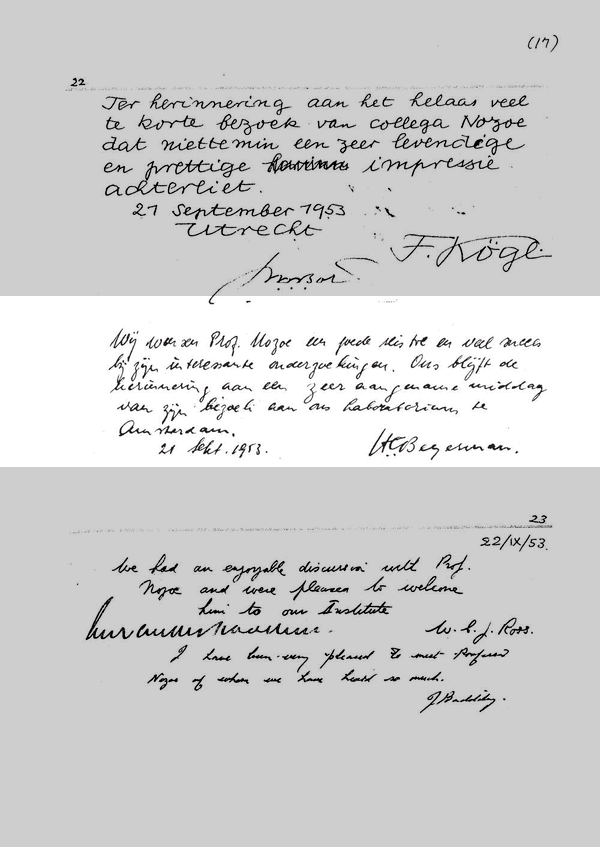 (17)
22
Ter herinnering aan het helaas veel
te korte bezoek van collega Nozoe
dat niettemin een zeer levendige
en prettige impressie
achterliet.
21 September 1953
Utrecht
F. Kögl
Wij wensen Prof. Nozoe een goede reis toe en veel succes
bij zijn interessante onderzoekingen. Ons blijft de
herinnering aan een zeer aangename middag
van zijn bezoek aan ons laboratorium te
Amsterdam.
21 Sept. 1953.
HCBeyerman.
23
22/IX/53.
We had an enjoyable discussion with Prof.
Nozoe and were pleased to welcome
him to our Institute
W. C. J. Ross.
I have been very pleased to meet Professor
Nozoe of whom we have heard so much.
J Baddiley.